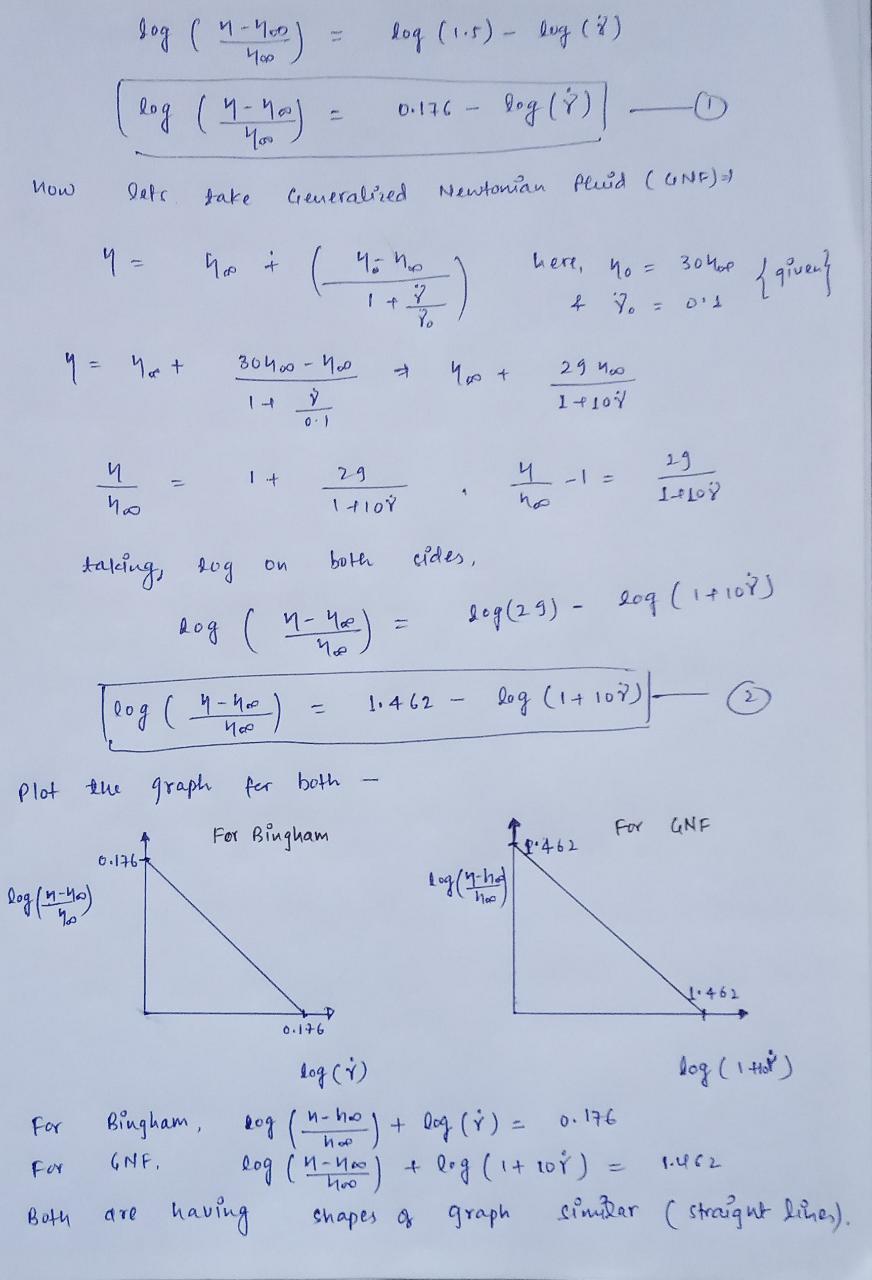 log ( (η-η∞)/η∞ ) = log (1.5) - log (γ̇)
log ( (η-η∞)/η∞ ) = 0.176 - log (γ̇) —①
Now lets take Generalized Newtonian fluid (GNF)⇒
η = η∞ + ( (η₀-η∞)/(1 + γ̇/γ̇₀) ) here, η₀ = 30η∞ {given}
& γ̇₀ = 0.1
η = η∞ + (30η∞ - η∞)/(1 + γ̇/0.1) ⇒ η∞ + 29η∞/(1+10γ̇)
η/η∞ = 1 + 29/(1+10γ̇) , η/η∞ -1 = 29/(1+10γ̇)
taking, log on both sides,
log ( (η-η∞)/η∞ ) = log(29) - log (1+10γ̇)
log ( (η-η∞)/η∞ ) = 1.462 - log (1+10γ̇) —②
Plot the graph for both —
For Bingham
0.176
log ( (η-η∞)/η∞ )
0.176
log (γ̇)
For GNF
1.462
log ( (η-η∞)/η∞ )
1.462
log (1+10γ̇)
For Bingham, log ( (η-η∞)/η∞ ) + log (γ̇) = 0.176
For GNF, log ( (η-η∞)/η∞ ) + log (1+10γ̇) = 1.462
Both are having shapes of graph similar (straight lines).